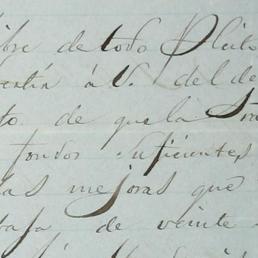 de todo Pleito
á V. del de
to. de que la Sra
fondos suficientes
las mejoras que
baja de veinte